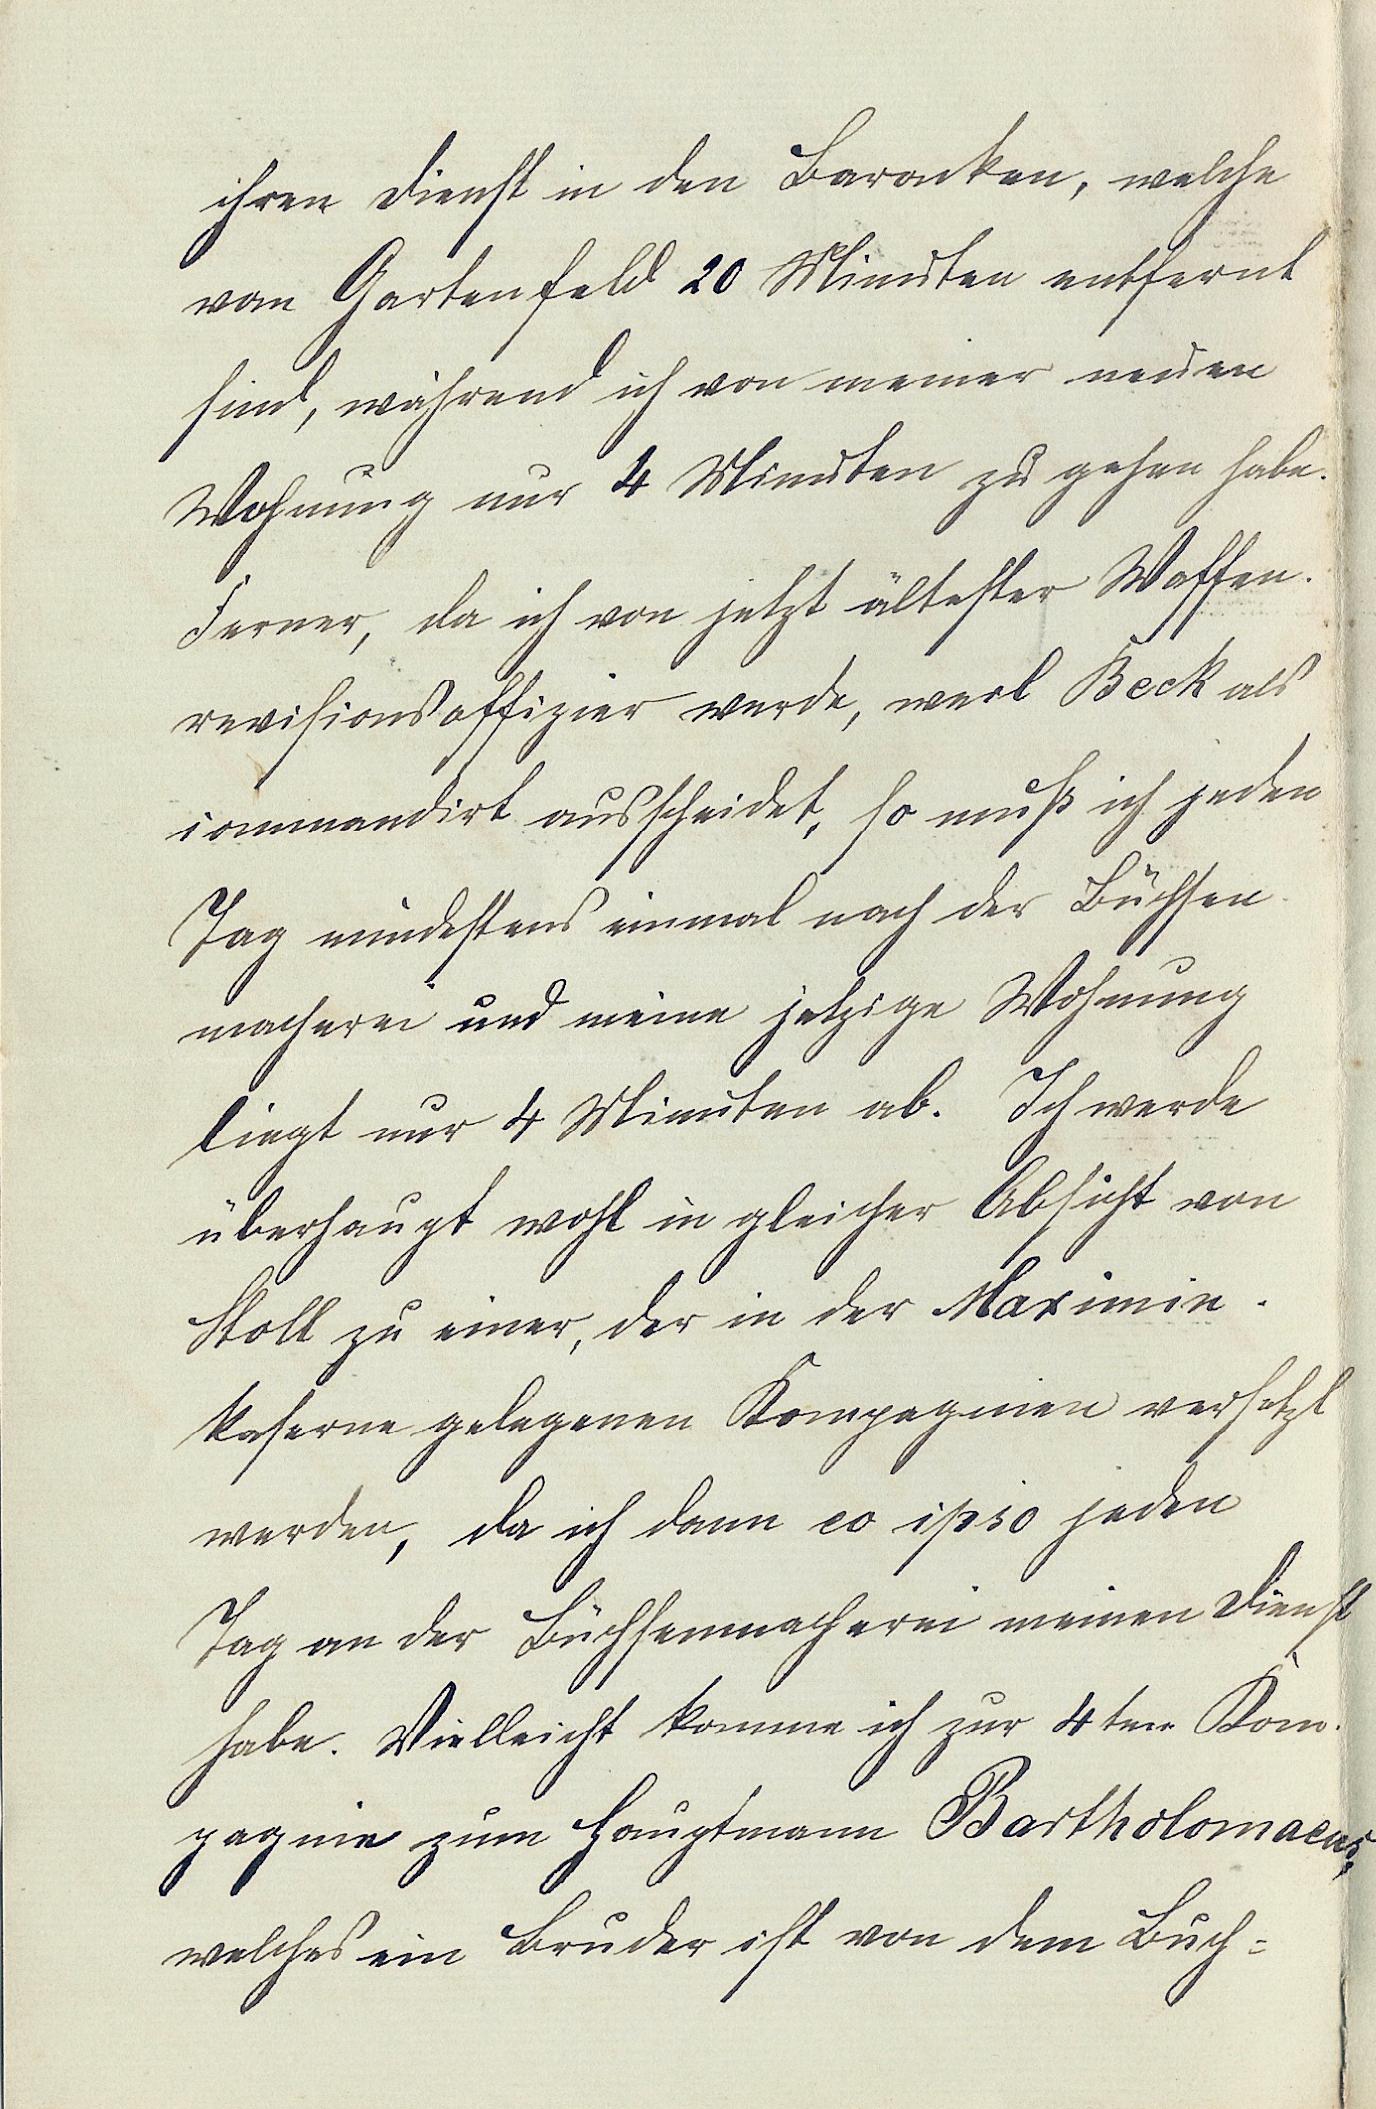 ihren Dienst in den Baracken, welche
vom Gartenfeld 20 Minuten entfernt
sind, während ich von meiner neuen
Wohnung nur 4 Minuten zu gehen habe.
Ferner, da ich von jetzt ältester Waffen-
revisionsoffizier werde, weil Beck als
commandirt ausscheidet, so muß ich jeden
Tag mindestens einmal nach der Büchsen-
macherei und meine jetzige Wohnung
liegt nur 4 Minuten ab. Ich werde
überhaupt wohl in gleicher Absicht von
Stoll zu einer, der in der Maximin-
kaserne gelegenen Kompagnien versetzt
werden, da ich dann eo ipso jeden
Tag an der Büchsenmacherei meinen Dienst
habe. Vielleicht komme ich zur 4ten Kom-
pagnie zum Hauptmann Bartholomaeus,
welches ein Bruder ist von dem Buch=